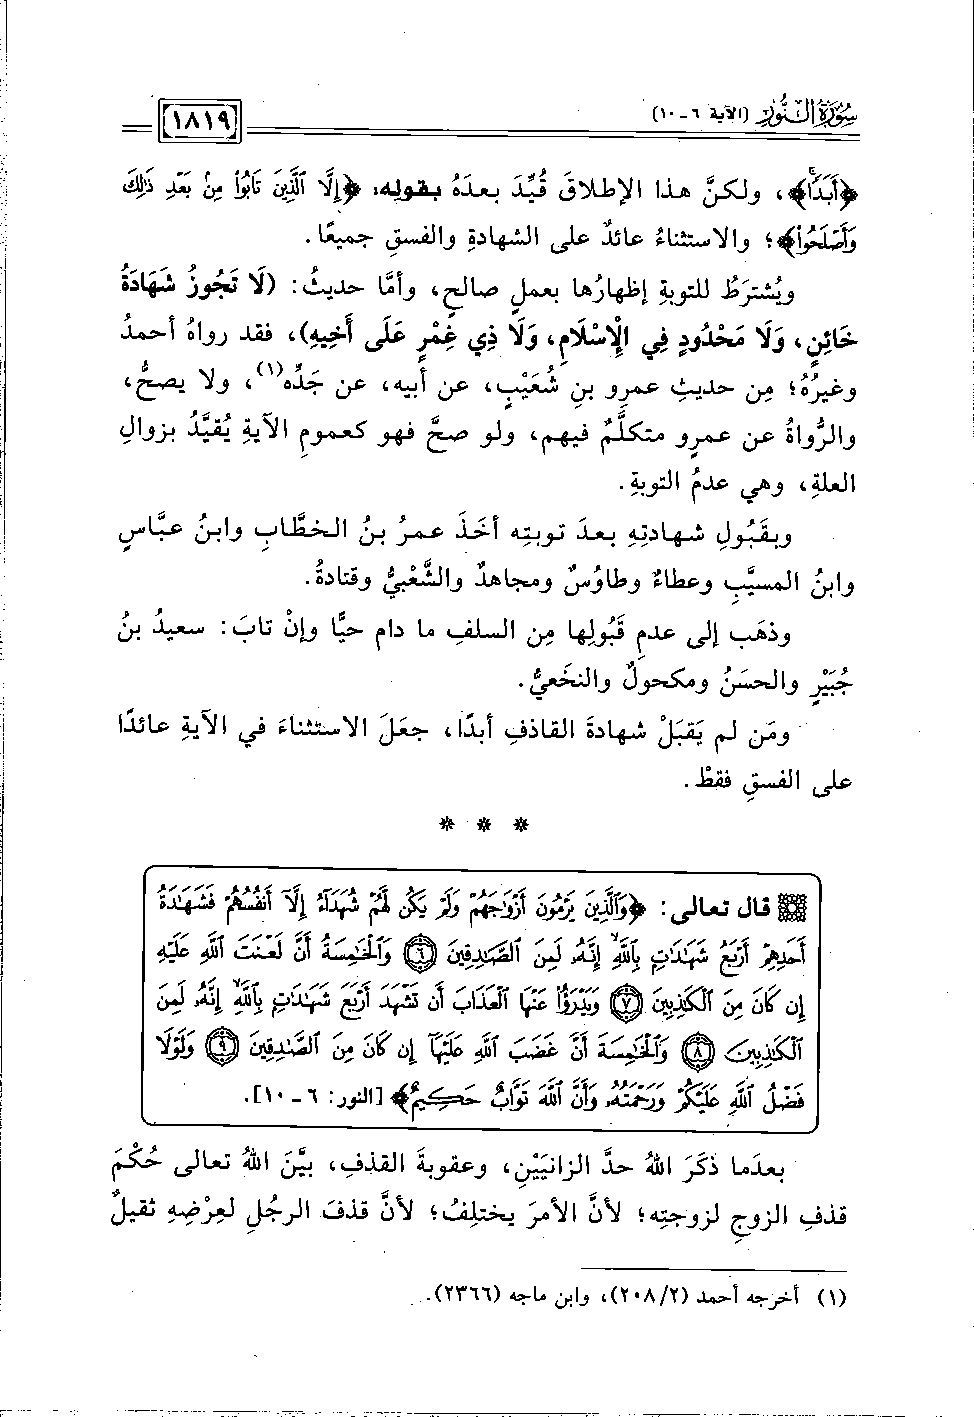 سُورَةُ النُّورِ (الآية ٦ ـ ١٠)
١٨١٩
﴿أَبَدًا﴾، ولكنَّ هذا الإطلاقَ قُيِّدَ بعدَهُ بقوله: ﴿إِلَّا ٱلَّذِينَ تَابُوا۟ مِنۢ بَعْدِ ذَٰلِكَ
وَأَصْلَحُوا۟﴾؛ والاستثناءُ عائدٌ على الشهادةِ والفسقِ جميعًا.
ويُشترَطُ للتوبةِ إظهارُها بعملٍ صالحٍ، وأمَّا حديثُ: (لَا تَجُوزُ شَهَادَةُ
خَائِنٍ، وَلَا مَحْدُودٍ فِي الْإِسْلَامِ، وَلَا ذِي غِمْرٍ عَلَى أَخِيهِ)، فقد رواهُ أحمدُ
وغيرُهُ؛ مِن حديثِ عمرِو بنِ شُعَيْبٍ، عن أبيه، عن جَدِّه(١)، ولا يصحُّ،
والرُّواةُ عن عمرٍو متكلَّمٌ فيهم، ولو صحَّ فهو كعمومِ الآيةِ يُقيَّدُ بزوالِ
العلةِ، وهي عدمُ التوبةِ.
وبقَبُولِ شهادتِهِ بعدَ توبتِه أخَذَ عمرُ بنُ الخطَّابِ وابنُ عبَّاسٍ
وابنُ المسيَّبِ وعطاءٌ وطاوُسٌ ومجاهدٌ والشَّعْبيُّ وقتادةُ.
وذهَب إلى عدمِ قَبُولِها مِن السلفِ ما دام حيًّا وإنْ تابَ: سعيدُ بنُ
جُبَيْرٍ والحسَنُ ومكحولٌ والنخَعيُّ.
ومَن لم يَقبَلْ شهادةَ القاذفِ أبدًا، جعَلَ الاستثناءَ في الآيةِ عائدًا
على الفسقِ فقطْ.
* * *
قال تعالى: ﴿وَٱلَّذِينَ يَرْمُونَ أَزْوَٰجَهُمْ وَلَمْ يَكُن لَّهُمْ شُهَدَآءُ إِلَّآ أَنفُسُهُمْ فَشَهَٰدَةُ
أَحَدِهِمْ أَرْبَعُ شَهَٰدَٰتٍۭ بِٱللَّهِ ۙ إِنَّهُۥ لَمِنَ ٱلصَّٰدِقِينَ ٦ وَٱلْخَٰمِسَةُ أَنَّ لَعْنَتَ ٱللَّهِ عَلَيْهِ
إِن كَانَ مِنَ ٱلْكَٰذِبِينَ ٧ وَيَدْرَؤُا۟ عَنْهَا ٱلْعَذَابَ أَن تَشْهَدَ أَرْبَعَ شَهَٰدَٰتٍۭ بِٱللَّهِ ۙ إِنَّهُۥ لَمِنَ
ٱلْكَٰذِبِينَ ٨ وَٱلْخَٰمِسَةَ أَنَّ غَضَبَ ٱللَّهِ عَلَيْهَآ إِن كَانَ مِنَ ٱلصَّٰدِقِينَ ٩ وَلَوْلَا
فَضْلُ ٱللَّهِ عَلَيْكُمْ وَرَحْمَتُهُۥ وَأَنَّ ٱللَّهَ تَوَّابٌ حَكِيمٌ﴾ [النور: ٦ ـ ١٠].
بعدَما ذكَرَ اللهُ حدَّ الزانيَيْنِ، وعقوبةَ القذفِ، بيَّنَ اللهُ تعالى حُكْمَ
قذفِ الزوجِ لزوجتِه؛ لأنَّ الأمرَ يختلِفُ؛ لأنَّ قذفَ الرجُلِ لعِرْضِهِ ثقيلٌ
(١) أخرجه أحمد (٢/ ٢٠٨)، وابن ماجه (٢٣٦٦).